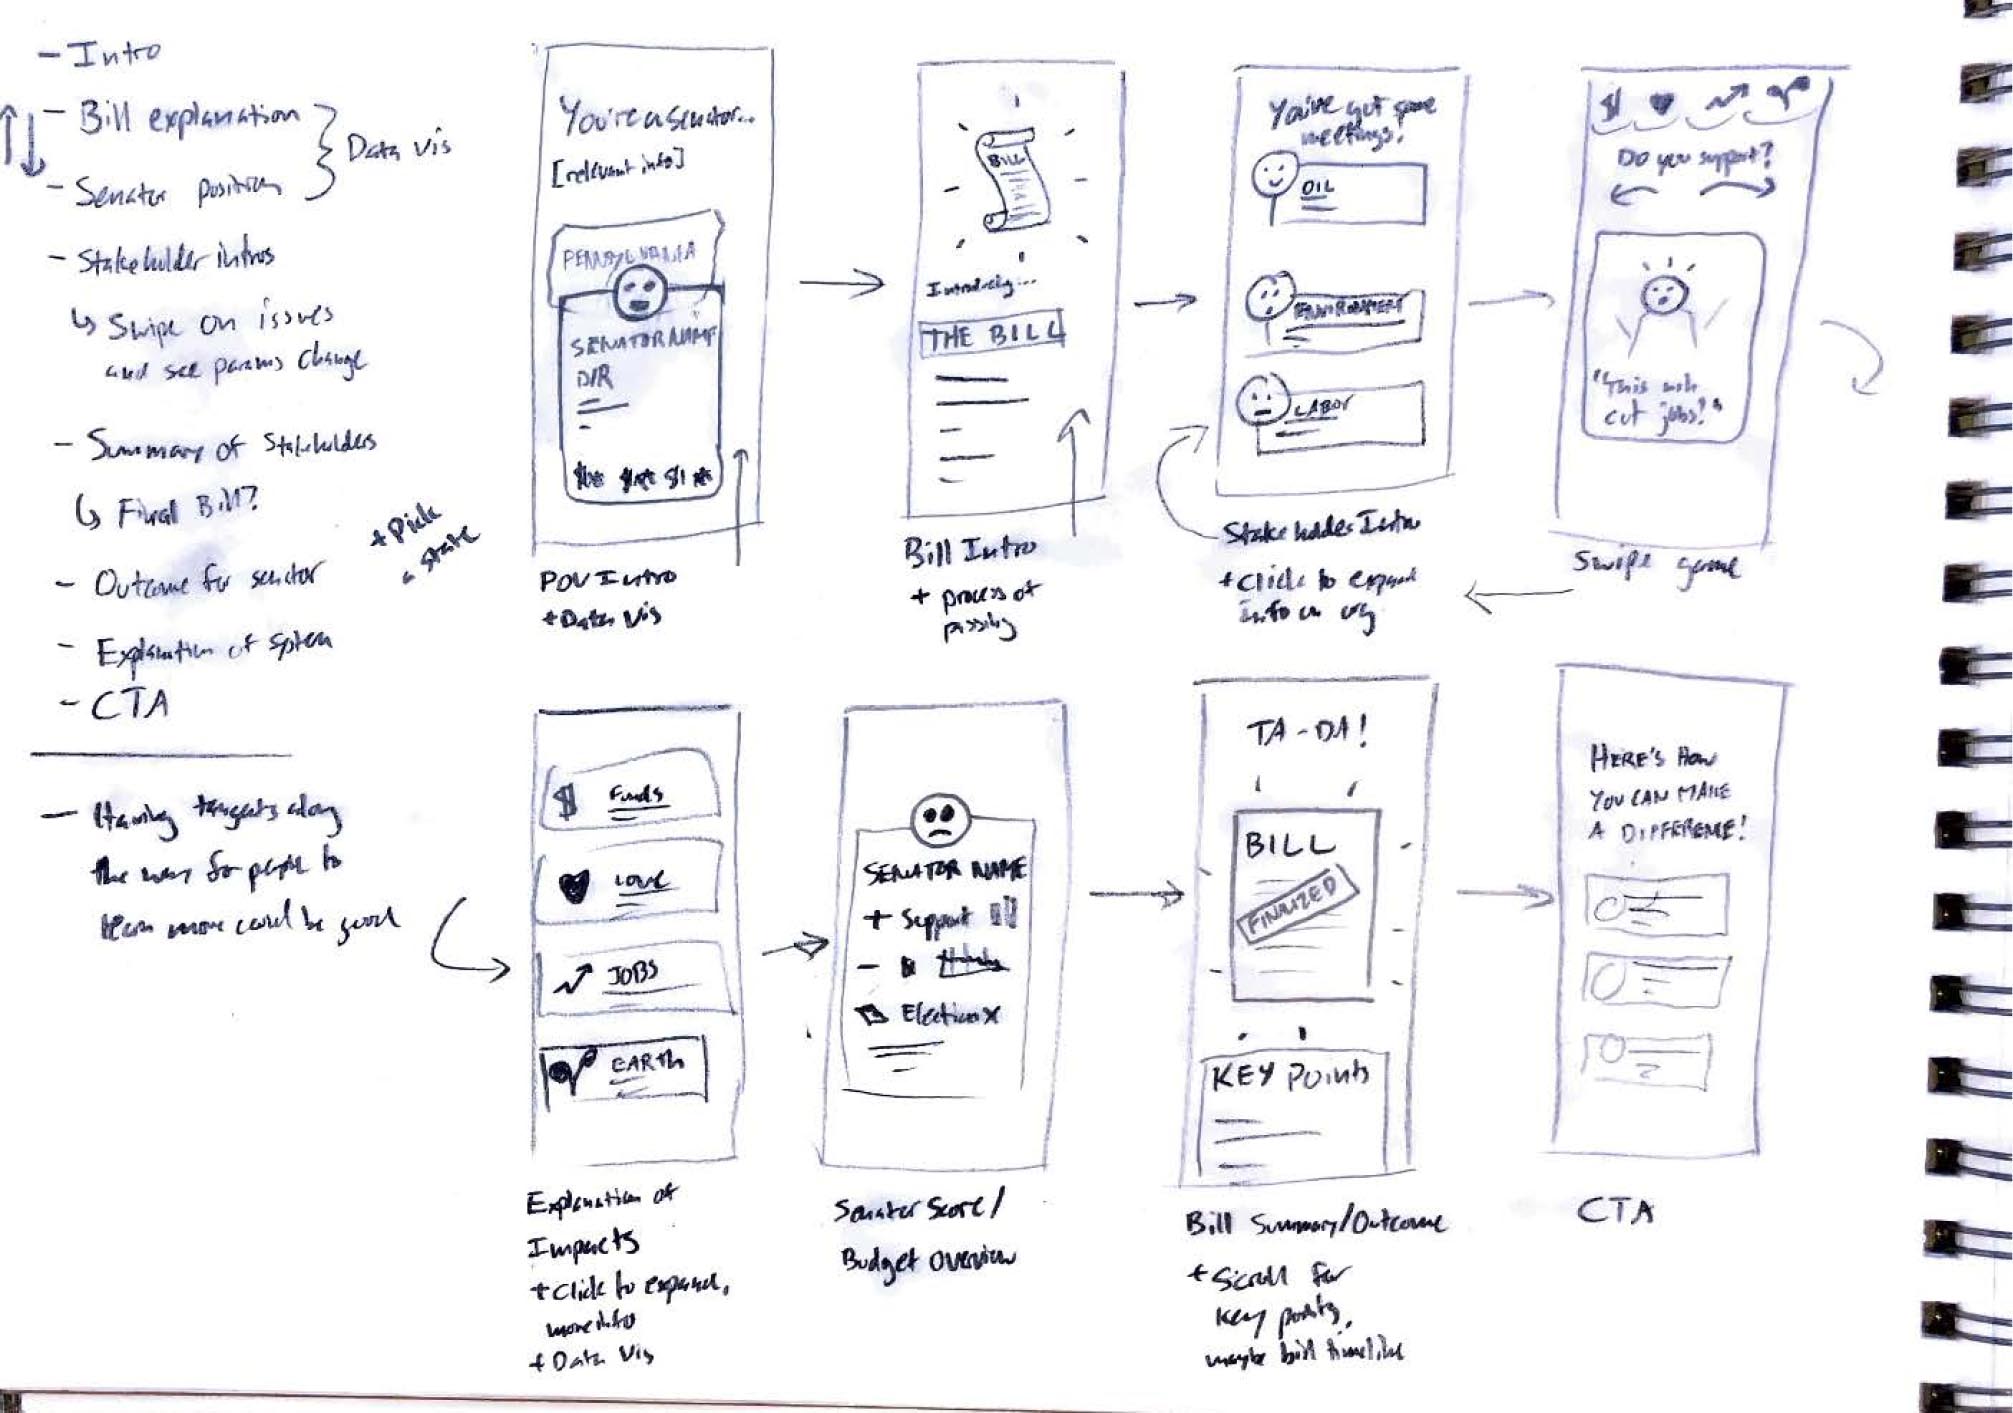 - Intro
- Bill explanation
- Senator position
Data vis
- Stakeholder intros
↳ Swipe on issues
and see params change
- Summary of Stakeholders
↳ Final Bill?
+ Pick
a state
- Outcome for senator
- Explanation of system
- CTA
- Having tangents along
the way for people to
learn more could be good
You're a senator...
[relevant info]
PENNSYLVANIA
SENATOR NAME
D/R
POV Intro
+ Data Vis
BILL
Introducing...
THE BILL
Bill Intro
+ process of
passing
You've got some
meetings!
OIL
ENVIRONMENT
LABOR
Stakeholder Intro
+ Click to expand
info on org
$
Do you support?
"This will
cut jobs!"
Swipe game
$ Funds
Love
JOBS
EARTH
Explanation of
Impacts
+ Click to expand,
more info
+ Data Vis
SENATOR NAME
+ Support
-
Election x
Senator Score/
Budget Overview
TA-DA!
BILL
FINALIZED
KEY Points
Bill Summary/Outcome
+ Scroll for
key points,
maybe bill timeline
HERE'S HOW
YOU CAN MAKE
A DIFFERENCE!
CTA